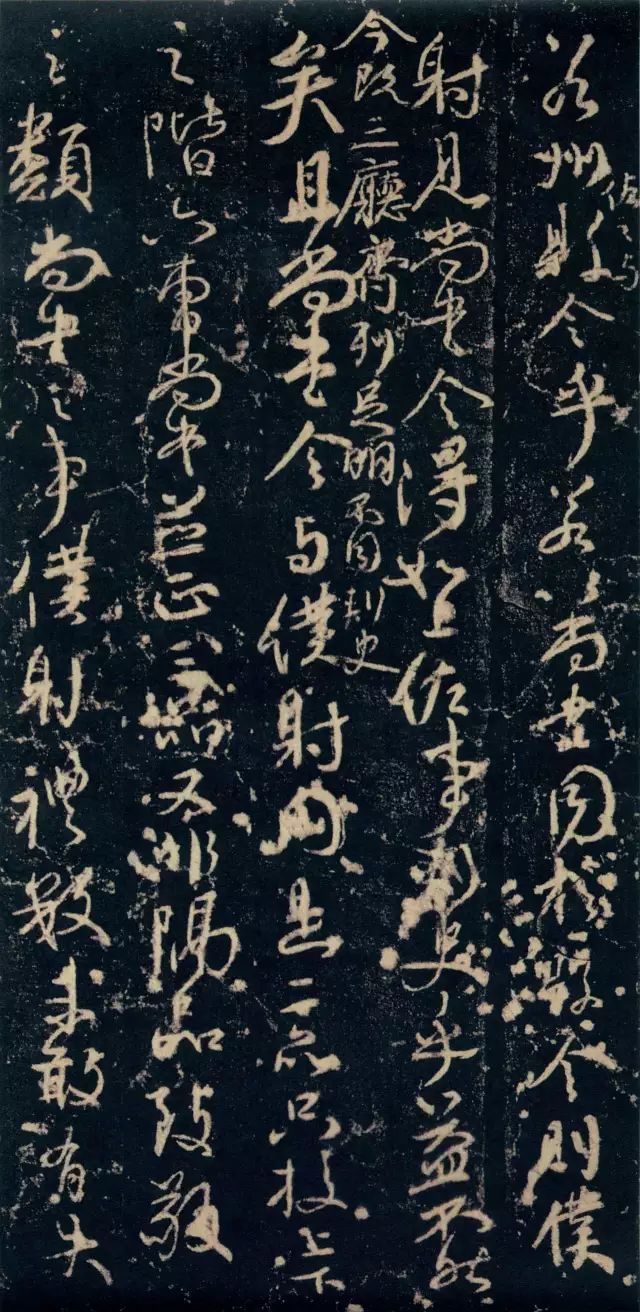 州縣令乎若以尚書同於縣令則僕
佐之与
射見尚書令得如上佐事刺史乎益不然
今既三廳齊列足明不同刺史
矣且尚書令与僕射同是二品只校上下
之階六曹尚書並正三品又非隔品致敬
之類尚書之事僕射禮數未敢有失